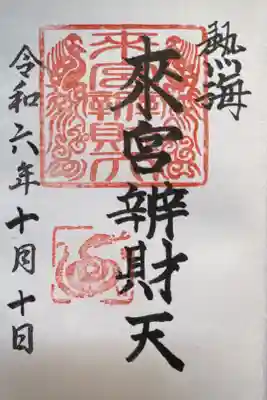 熱海
來宮辨財天
來宮辨財天
令和六年十月十日